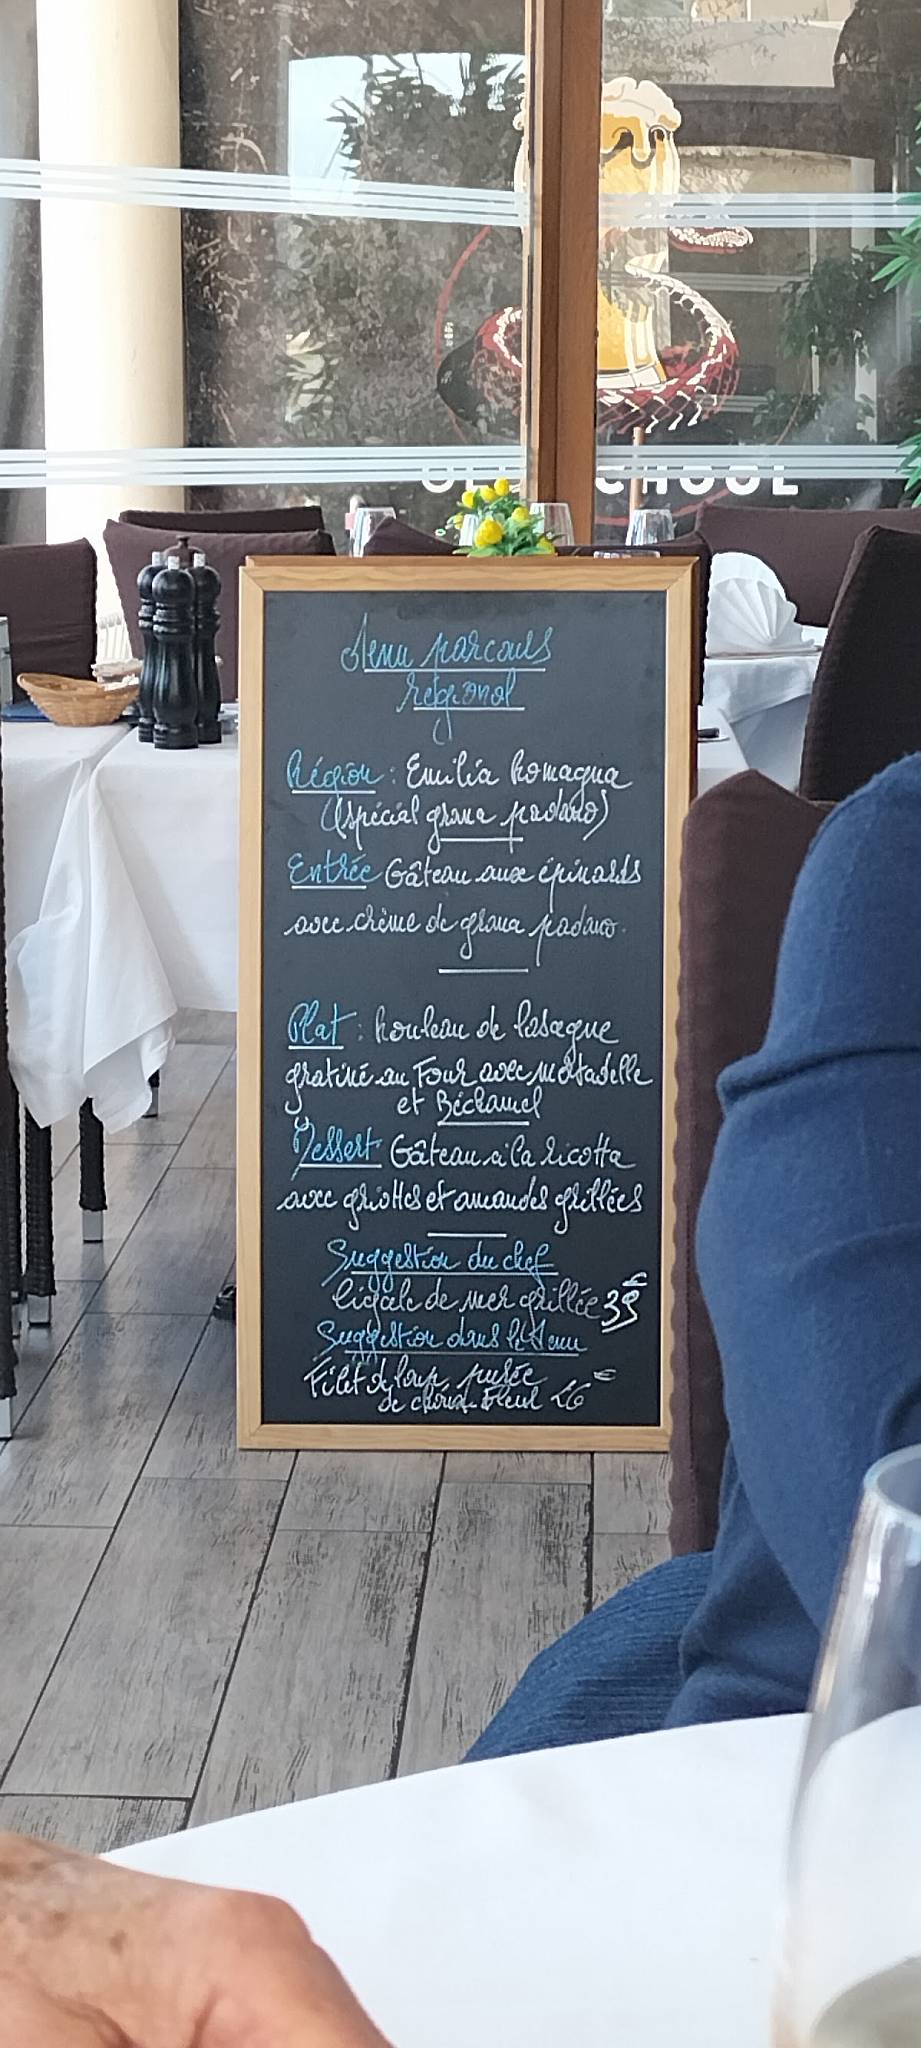 OLD SCHOOL
Menu parcours
régional
Région : Emilia Romagna
(spécial grana padano)
Entrée Gâteau aux épinards
avec crème de grana padano.
Plat : Rouleau de lasagne
gratiné au Four avec mortadelle
et Béchamel
Dessert Gâteau à la ricotta
avec griottes et amandes grillées
Suggestion du chef
Cigale de mer grillée 39€
Suggestion dans le Menu
Filet de loup, purée
de choux-Fleur 26€